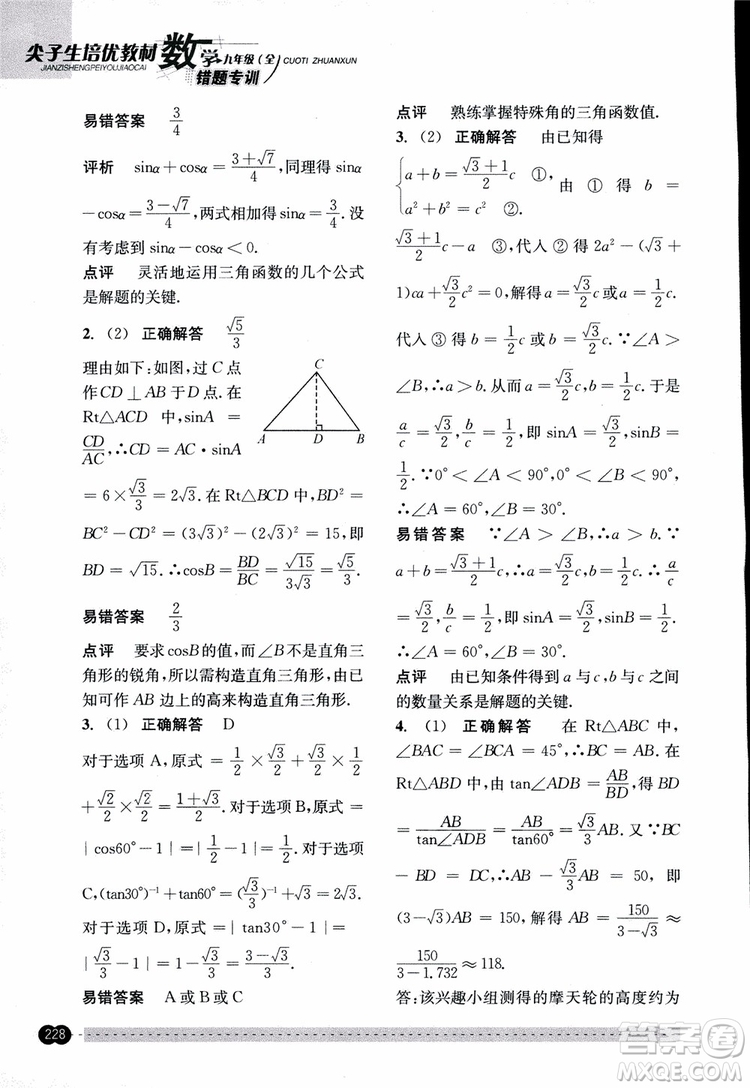 尖子生培优教材 数学 九年级(全) CUOTI ZHUANXUN
JIANZISHENGPEIYOUJIAOCAI 错题专训
易错答案 3/4
评析 sinα+cosα=(3+√7)/4,同理得 sinα
-cosα=(3-√7)/4,两式相加得 sinα=3/4.没
有考虑到 sinα-cosα<0.
点评 灵活地运用三角函数的几个公式
是解题的关键.
2. (2) 正确解答 √5/3
理由如下:如图,过 C 点
作 CD⊥AB 于 D 点.在
Rt△ACD 中,sinA=
CD/AC,∴CD=AC·sinA
C
A D B
=6×√3/3=2√3.在 Rt△BCD 中,BD²=
BC²-CD²=(3√3)²-(2√3)²=15,即
BD=√15.∴cosB=BD/BC=√15/3√3=√5/3.
易错答案 2/3
点评 要求cosB的值,而∠B不是直角三
角形的锐角,所以需构造直角三角形,由已
知可作 AB 边上的高来构造直角三角形.
3. (1) 正确解答 D
对于选项 A,原式=1/2×√3/2+1/2×√3/2
+√2/2×√2/2=(1+√3)/2.对于选项 B,原式=
|cos60°-1|=|1/2-1|=1/2.对于选项
C,(tan30°)⁻¹=(√3/3)⁻¹+2√3=2√3.
对于选项 D,原式=|tan30°-1|=
|√3/3-1|=1-√3/3=(3-√3)/3=(3-√3)/3.
易错答案 A或B或C
点评 熟练掌握特殊角的三角函数值.
3. (2) 正确解答 由已知得
{a+b=(√3+1)/2c ①,
a²+b²=c² ②.
由 ① 得 b=
(√3+1)/2c-a ③,代入 ② 得 2a²-(√3+
1)ca+√3/2c²=0,解得 a=√3/2c或a=1/2c.
代入 ③ 得 b=1/2c 或 b=√3/2c.∵∠A>
∠B,∴a>b.从而 a=√3/2c,b=1/2c.于是
a/c=√3/2,b/c=1/2,即 sinA=√3/2,sinB=
1/2.∵0°<∠A<90°,0°<∠B<90°,
∴∠A=60°,∠B=30°.
易错答案 ∵∠A>∠B,∴a>b.∵
a+b=(√3+1)/2c,∴a=√3/2c,b=1/2c.∴a/c
=√3/2,b/c=1/2,即 sinA=√3/2,sinB=1/2.
∴∠A=60°,∠B=30°.
点评 由已知条件得到 a 与 c,b 与 c 之间
的数量关系是解题的关键.
4. (1) 正确解答 在 Rt△ABC 中,
∠BAC=∠BCA=45°,∴BC=AB.在
Rt△ABD 中,由 tan∠ADB=AB/BD,得 BD
=AB/tan∠ADB=AB/tan60°=√3/3AB.又∵BC
-BD=CD,∴AB-√3/3AB=50,即
(3-√3)AB=150,解得 AB=150/(3-√3)≈
150/(3-1.732)≈118.
答:该兴趣小组测得的摩天轮的高度约为
228
答案圈
MXQE.COM